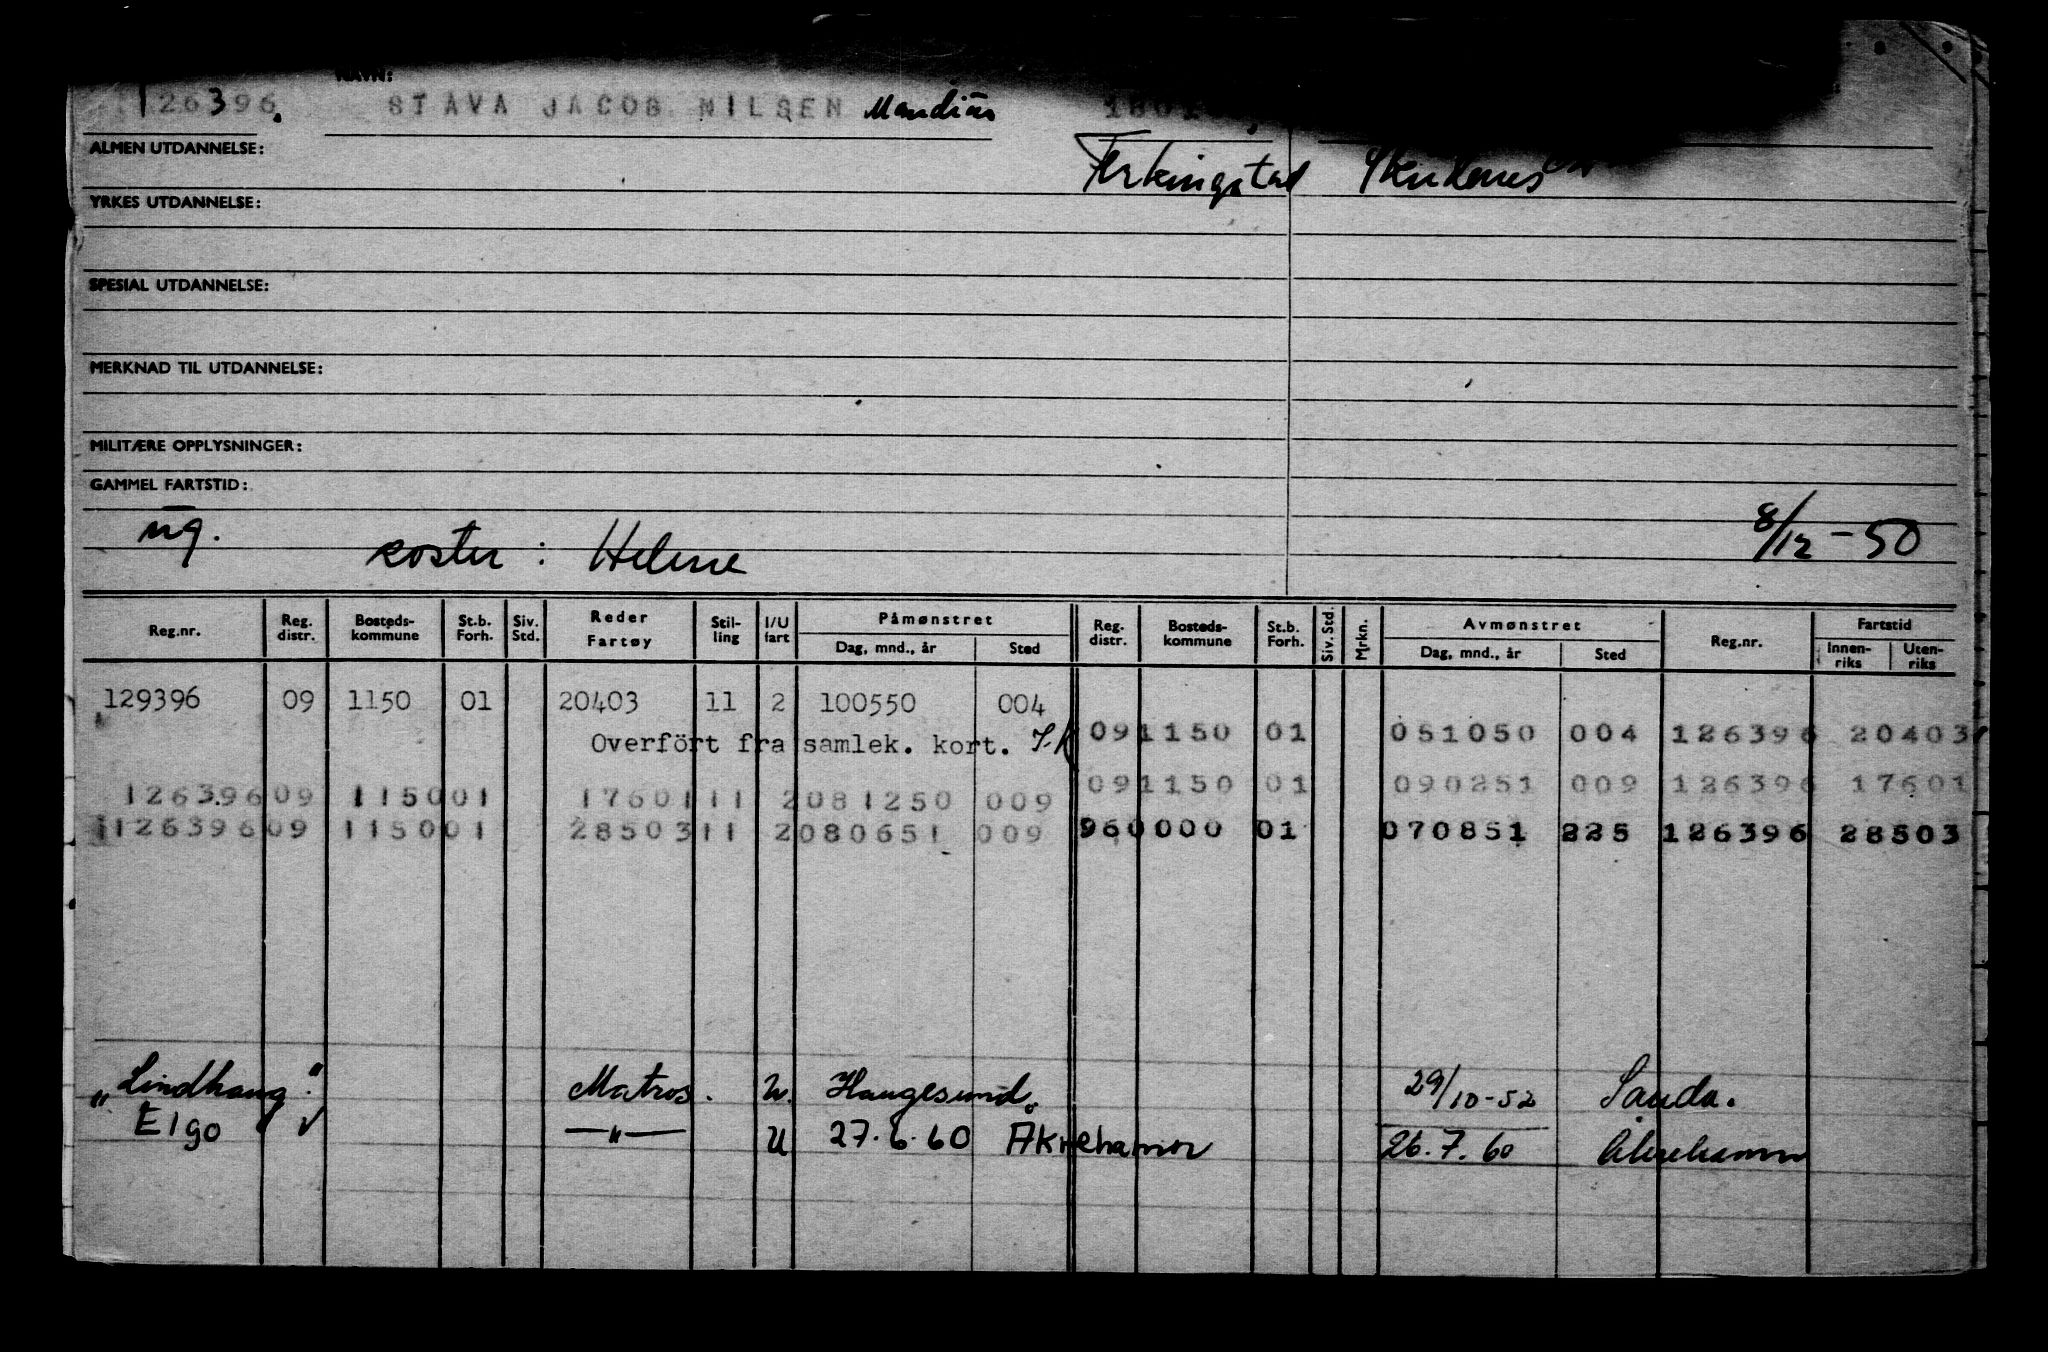 NAVN:
126396. STAVA JACOB NILSEN
ALMEN UTDANNELSE: Ferkingstad Skudenes
YRKES UTDANNELSE:
SPESIAL UTDANNELSE:
MERKNAD TIL UTDANNELSE:
MILITÆRE OPPLYSNINGER:
GAMMEL FARTSTID:
ug. koster : Helene 8/12 - 50
Reg.nr. Reg. distr. Bosteds-kommune St.b. Forh. Siv. Std. Reder Fartøy Stil-ling I/U fart Påmønstret Dag, mnd., år Sted Reg. distr. Bosteds-kommune St.b. Forh. Siv. Std. Mrkn. Avmønstret Dag, mnd., år Sted Reg.nr. Fartstid Innen-riks Uten-riks
129396 09 1150 01 20403 11 2 100550 004
Overfört fra samlek. kort. 091150 01 051050 004 126396 20403
091150 01 090251 009 126396 17601
126396 09 1150 01 17601 11 2 081250 009
126396 09 1150 01 28503 11 2 080651 009 960000 01 070851 225 126396 28503
"Lindhaug". Matros. U. Haugesund. 29/10-52 Sauda.
Elgo √ —"— U 27.6.60 Åkrehamn 26.7.60 Åkrehamn